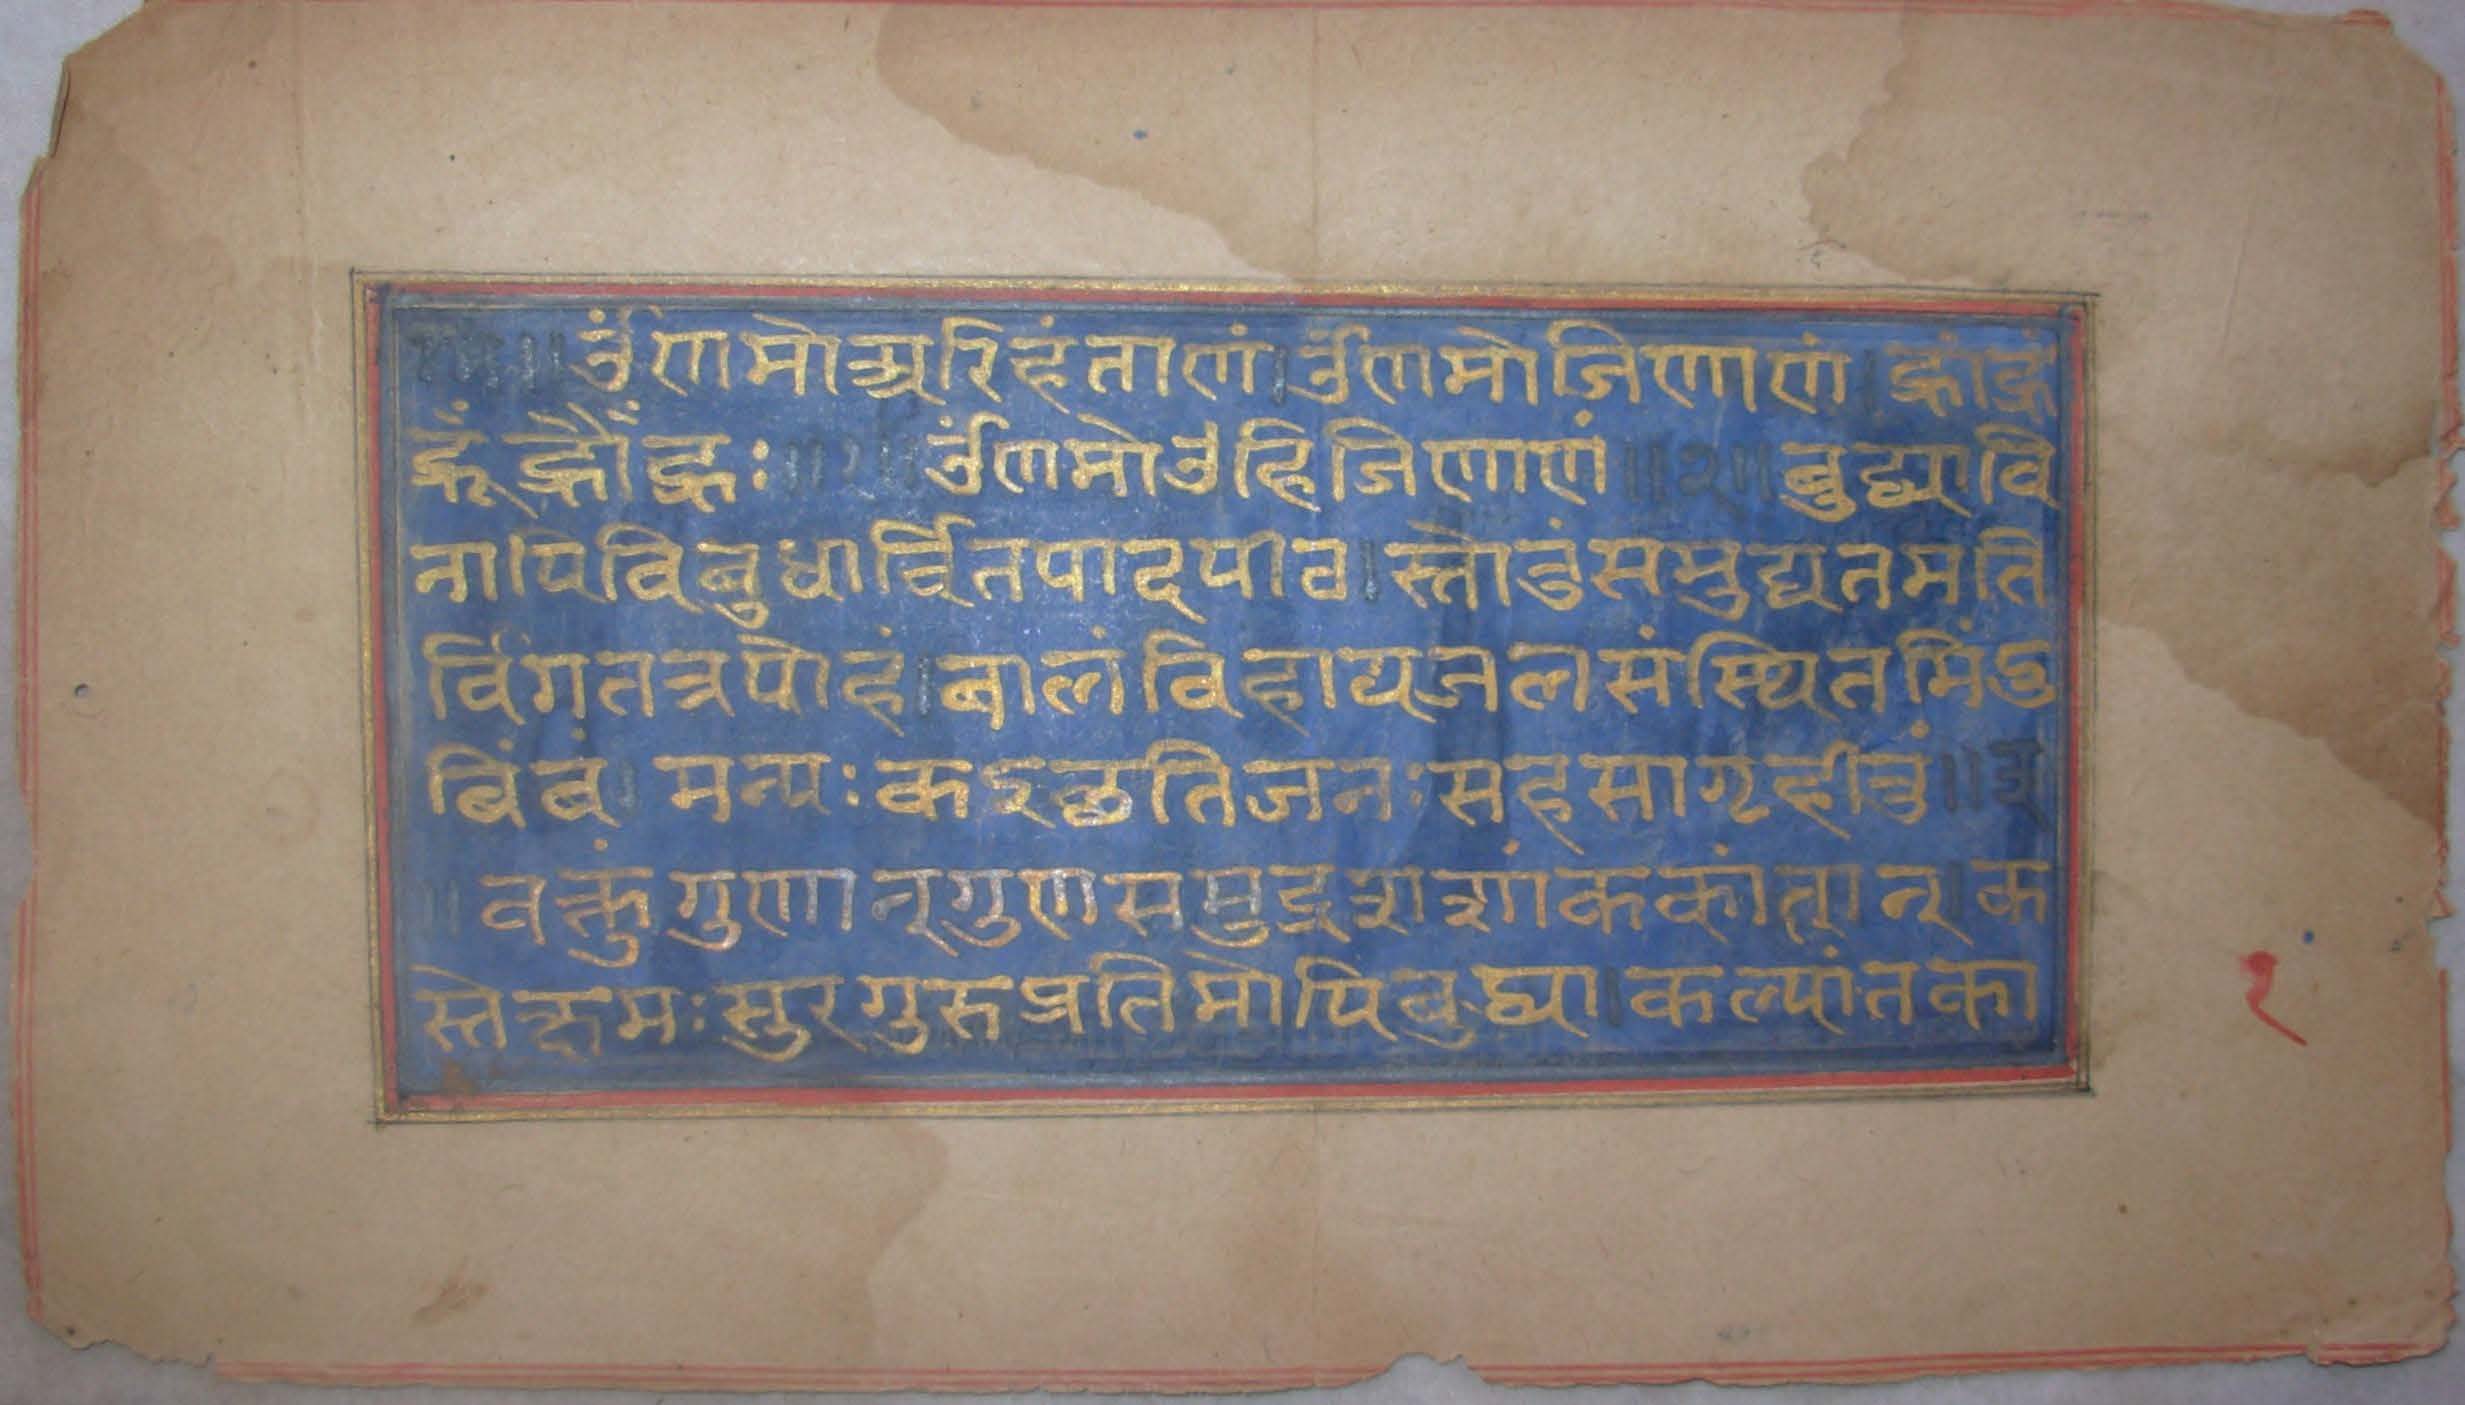 ॥ ॐणमोअरिहंताणं।ॐणमोजिणाणं। ह्राँह्रीं
ह्रूँह्रौंह्रः ॥१॥ ॐणमोउहिजिणाणं ॥२॥ बुद्ध्यावि
नापिविबुधार्चितपादपीठ।स्तोतुंसमुद्यतमति
र्विगतत्रपोहं।बालंविहायजलसंस्थितमिंदु
बिंबं। मन्यःकइच्छतिजनःसहसागृहीतुं॥३
॥ वक्तुंगुणान्गुणसमुद्रशशांककांतान्।क
स्तेक्षमःसुरगुरुप्रतिमोपिबुद्ध्या।कल्पांतका
१